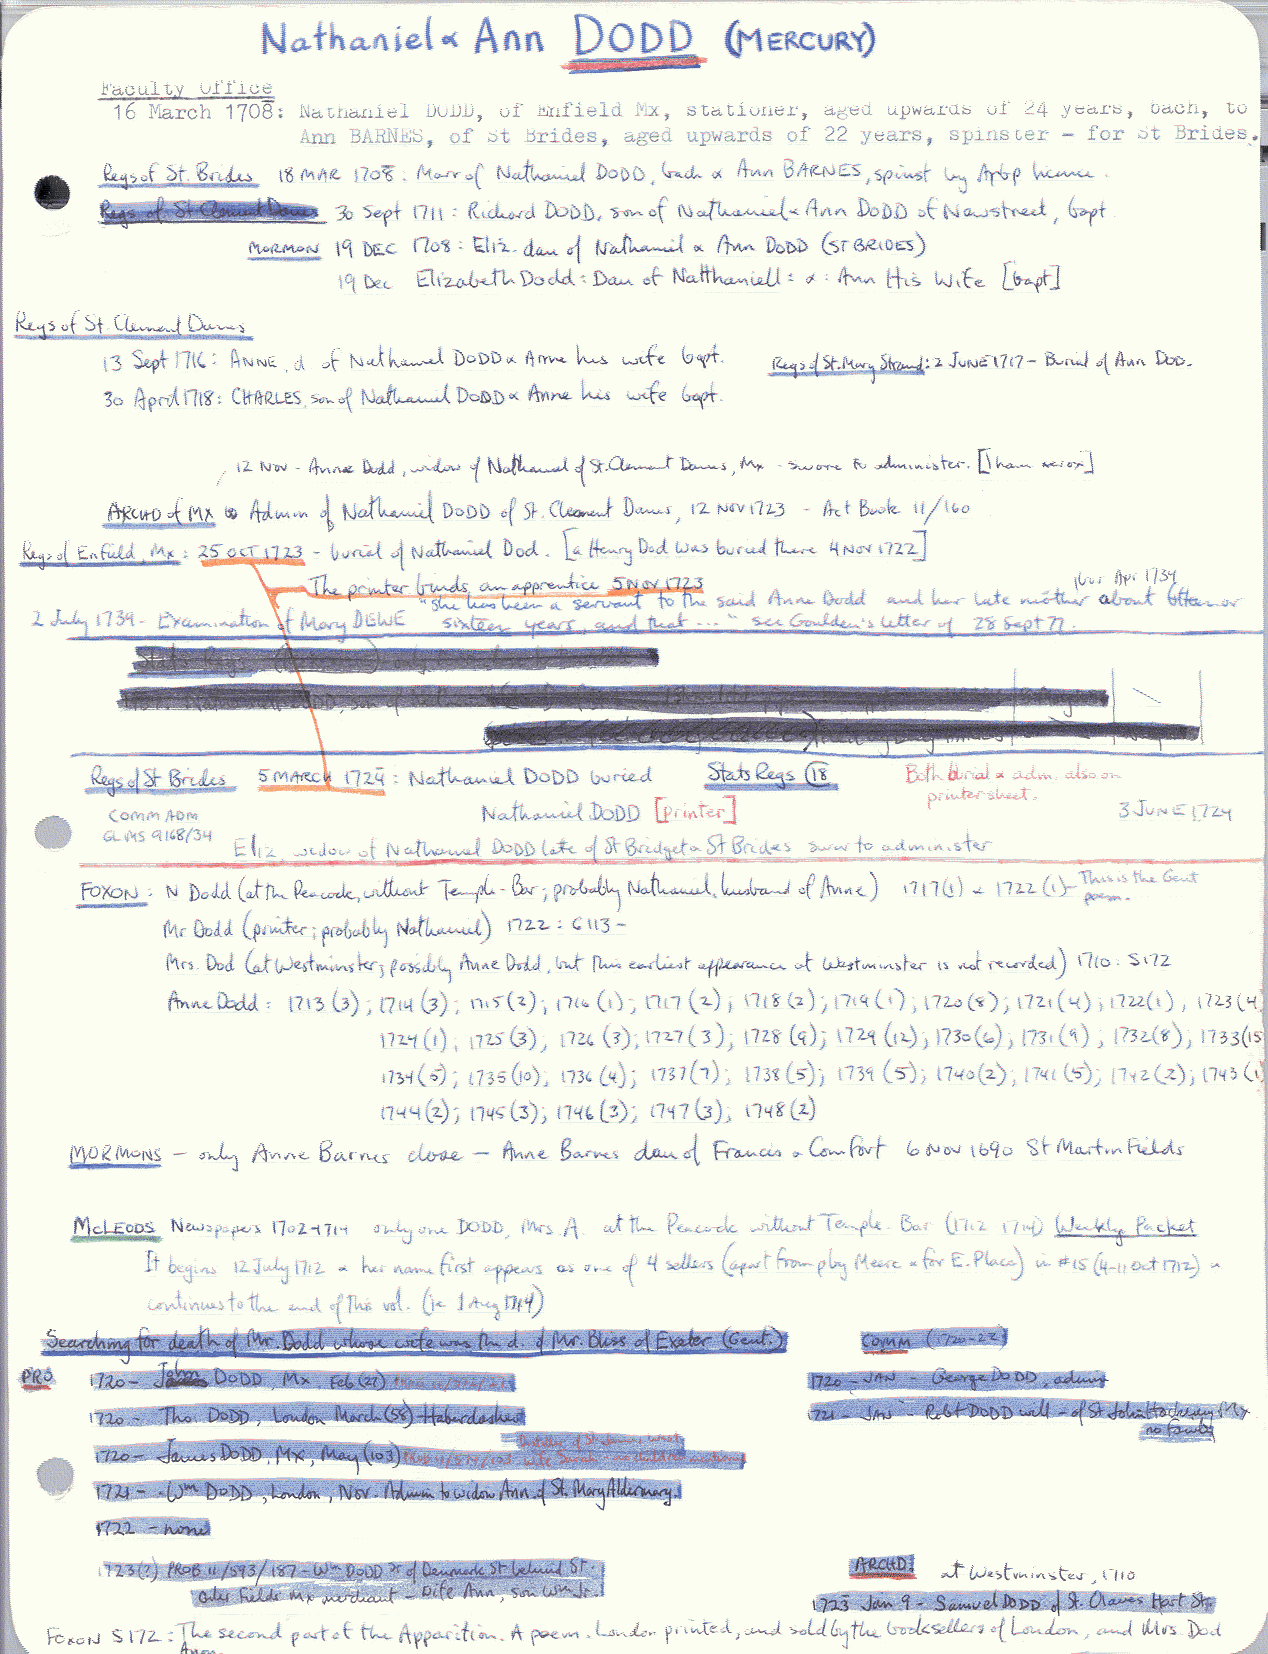 Nathaniel & Ann DODD (MERCURY)
Faculty Office
16 March 1708: Nathaniel DODD, of Enfield Mx, stationer, aged upwards of 24 years, bach, to
Ann BARNES, of St Brides, aged upwards of 22 years, spinster - for St Brides.
Regs of St. Brides 18 MAR 1708: Marr of Nathaniel DODD, bach & Ann BARNES, spinst by Arbp licence.
Regs of St Clement Danes 30 Sept 1711: Richard DODD, son of Nathaniel & Ann DODD of Newstreet, bapt
MORMON 19 DEC 1708: Eliz. dau of Nathaniel & Ann DODD (ST BRIDES)
19 Dec Elizabeth Dodd: Dau of Natthaniell: &: Ann His Wife [bapt]
Regs of St. Clement Danes
13 Sept 1716: ANNE, d of Nathaniel DODD & Anne his wife bapt. Regs of St. Mary Strand: 2 JUNE 1717 - Burial of Ann DOD.
30 April 1718: CHARLES, son of Nathaniel DODD & Anne his wife bapt.
12 Nov - Anne Dodd, widow of Nathaniel of St. Clement Danes, Mx - swore to administer. [I have xerox]
ARCHD of MX Admon of Nathaniel DODD of St. Clement Danes, 12 NOV 1723 - Act Book 11/160
Regs of Enfield, Mx: 25 OCT 1723 - burial of Nathaniel Dod. [a Henry Dod was buried there 4 NOV 1722]
The printer binds an apprentice 5 NOV 1723
Apr 1734
"she has been a servant to the said Anne Dodd and her late mother about fifteen or
2 July 1739 - Examination of Mary DEWE sixteen years, and that ..." see Goulden's letter of 28 Sept 77.
Regs of St Brides 5 MARCH 1724: Nathaniel DODD buried Stats Regs (18 Both burial & adm. also on
printer sheet.
COMM ADM Nathaniel DODD [printer] 3 JUNE 1724
GL MS 9168/34
Eliz, widow of Nathaniel DODD late of St Bridget & St Brides swore to administer
FOXON: N Dodd (at the Peacock, without Temple-Bar; probably Nathaniel, husband of Anne) 1717(1) & 1722(1) - This is the Gent
poem.
Mr Dodd (printer; probably Nathaniel) 1722: G113 -
Mrs. Dod (at Westminster; possibly Anne Dodd, but this earliest appearance at Westminster is not recorded) 1710. S172
Anne Dodd: 1713(3); 1714(3); 1715(2); 1716(1); 1717(2); 1718(2); 1719(1); 1720(8); 1721(4); 1722(1), 1723(4
1724(1); 1725(3); 1726(3); 1727(3); 1728(9); 1729(12); 1730(6); 1731(9); 1732(8); 1733(15
1734(5); 1735(10); 1736(4); 1737(7); 1738(5); 1739(5); 1740(2); 1741(5); 1742(2); 1743(1
1744(2); 1745(3); 1746(3); 1747(3); 1748(2)
MORMONS - only Anne Barnes close - Anne Barnes dau of Francis & Comfort 6 NOV 1690 St Martin Fields
McLEODS Newspapers 1702-1714 only one DODD, Mrs. A. at the Peacock without Temple-Bar (1712 1714) Weekly Packet
It begins 12 July 1712 & her name first appears as one of 4 sellers (apart from p by Meere & for E. Place) in #15 (4-11 Oct 1712) &
continues to the end of this vol. (ie 1 Aug 1714)
Searching for death of Mr. Dodd whose wife was the d. of Mr. Bliss of Exeter (Gent.) COMM (1720-22)
PRO 1720 - John DODD, Mx, Feb (27) 1720 - JAN - George DODD, admon
1720 - Tho. DODD, London March (58) Haberdasher 1721 - JAN - Robt DODD will - of St John Hackney Mx
no family
1720 - James DODD, MX, May (103) PROB 11/574/103 wife Sarah
1721 - Wm DODD, London, Nov. Admon to widow Ann of St. Mary Aldermary.
1722 - none
1723(?) PROB 11/593/187 - Wm DODD Sr of Denmark St behind St.
Giles Fields Mx merchant - wife Ann, son Wm Jr.
ARCHD. at Westminster, 1710
1723 Jan 9 - Samuel DODD of St. Olaves Hart St.
FOXON S172: The second part of the Apparition. A poem. London printed, and sold by the booksellers of London, and Mrs. Dod
Anon.